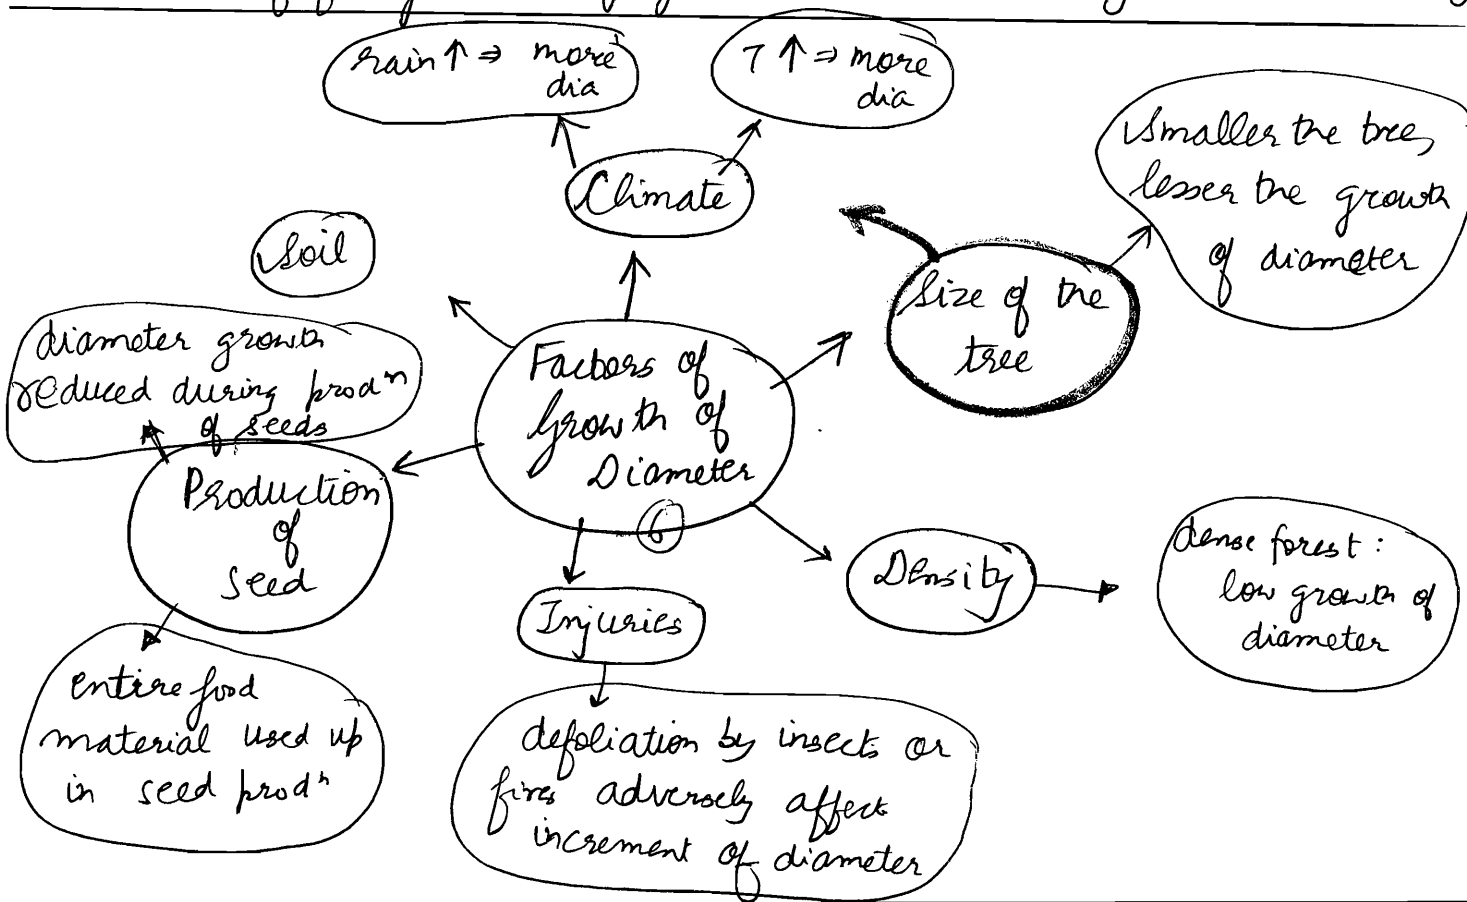 rain ↑ ⇒ more
dia
T ↑ ⇒ more
dia
Climate
Smaller the tree,
lesser the growth
of diameter
Soil
Size of the
tree
diameter growth
reduced during prodⁿ
of seeds
Factors of
Growth of
Diameter
6
Production
of
seed
Density
dense forest :
low growth of
diameter
Injuries
entire food
material used up
in seed prodⁿ
defoliation by insects or
fires adversely affect
increment of diameter